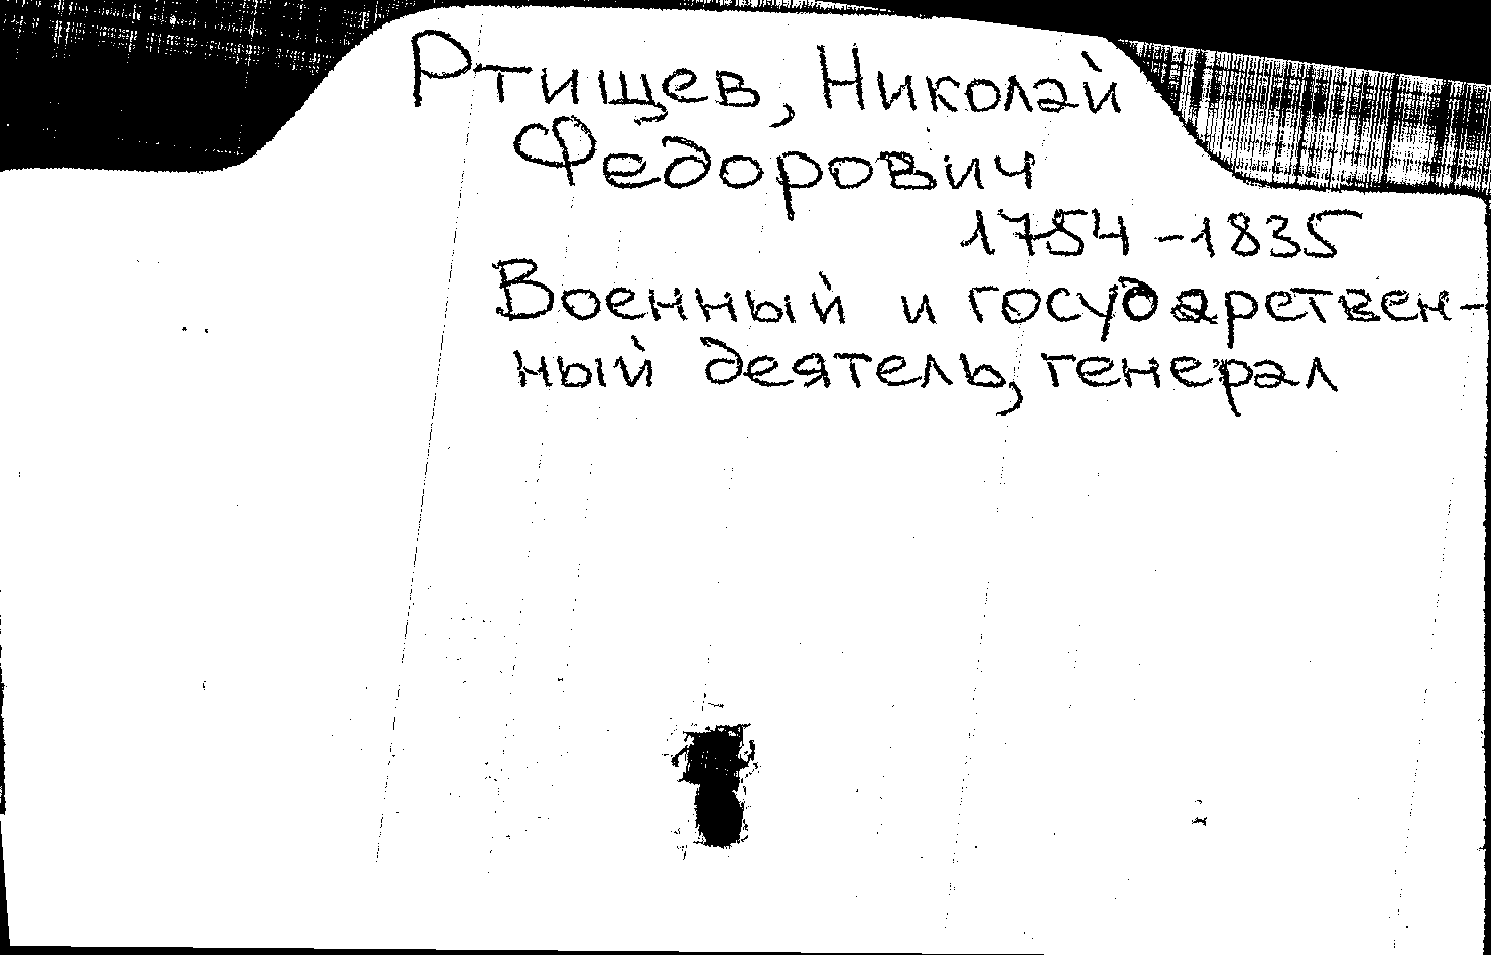 Ртищев, Николай
Федорович
1754-1835
Военный и государствен-
ный деятель, генерал